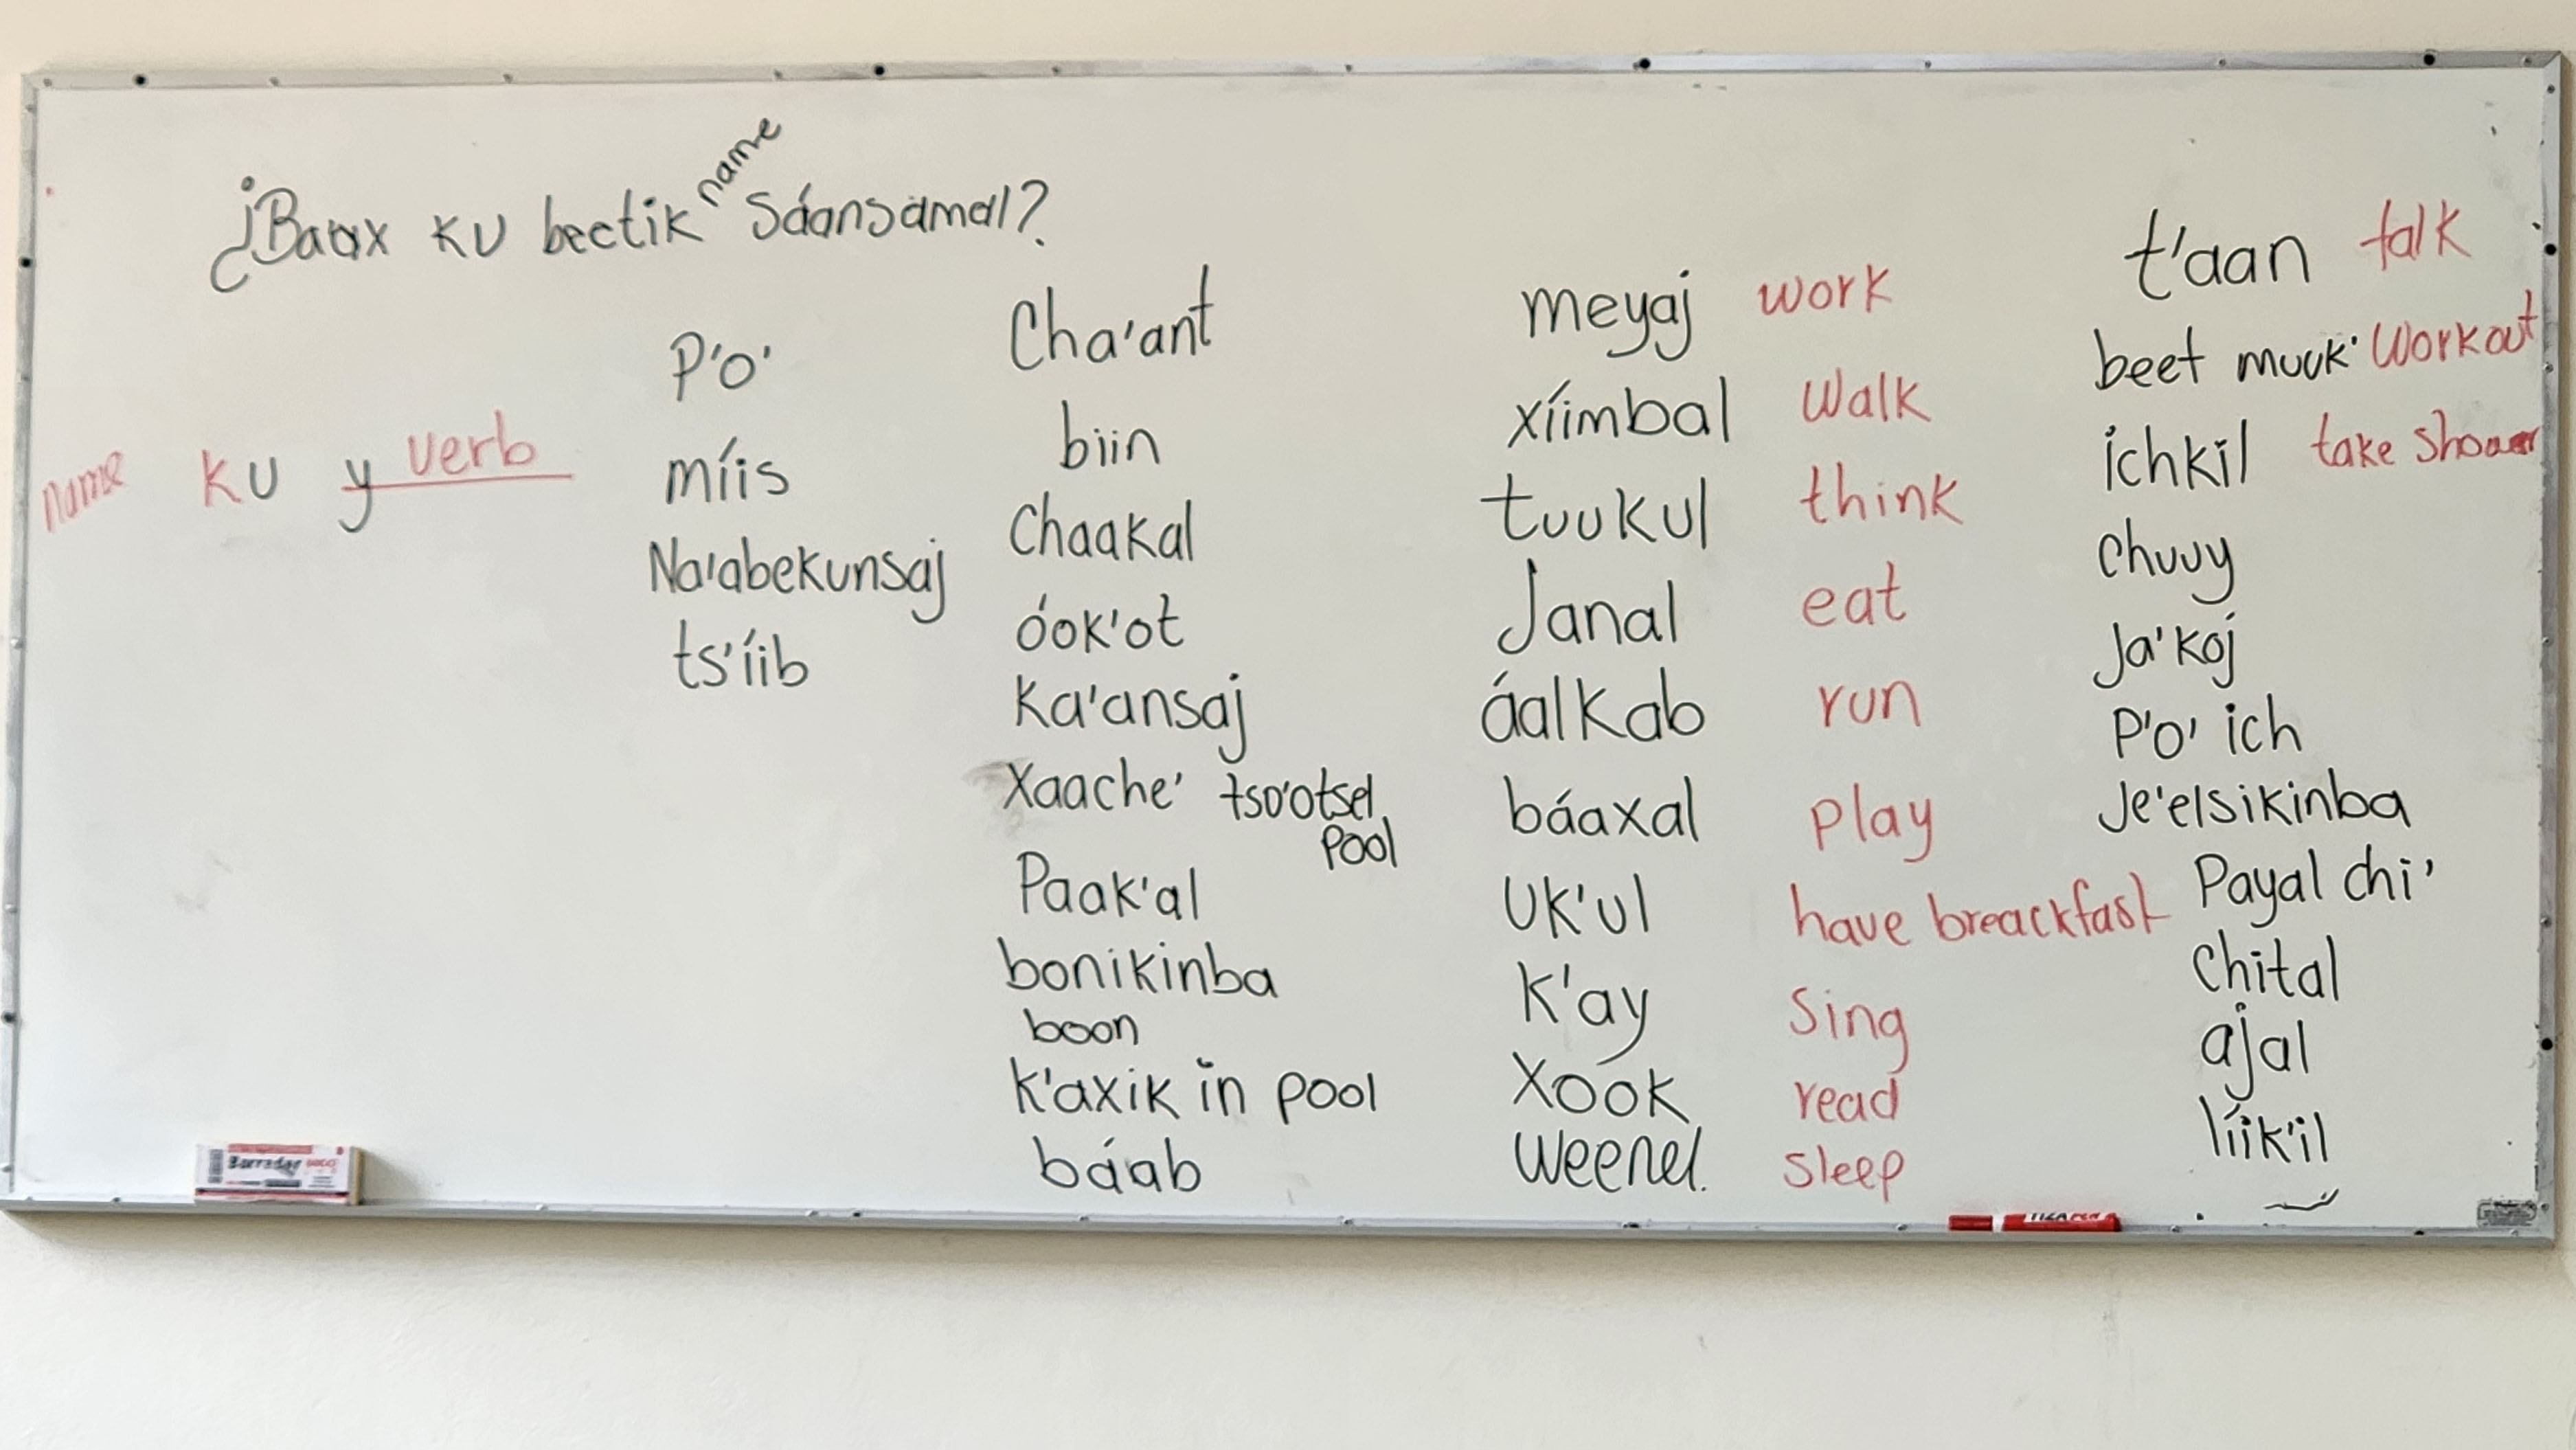 ¿Baax ku beetik name Sáansamal?
name ku y verb
P'o'
míis
Na'abekunsaj
ts'íib
Cha'ant
biin
Chaakal
óok'ot
Ka'ansaj
Xaache' tso'otsel pool
Paak'al
bonikinba
boon
k'axik in pool
báab
meyaj work
xíimbal walk
tuukul think
Janal eat
áalkab run
báaxal play
Uk'ul have breackfast
K'ay Sing
Xook read
Weenel. sleep
t'aan talk
beet muuk' Workout
ichkil take shower
Chuuy
Ja'koj
P'o' ich
Je'elsikinba
Payal chi'
Chital
ajal
líik'il
Borrador